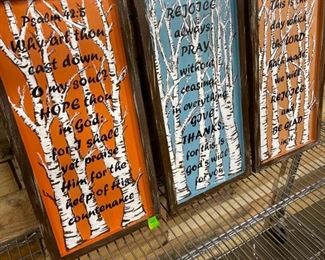 Psalm 42:5
Why art thou
cast down,
O my soul?
HOPE thou
in God:
for I shall
yet praise
Him for the
help of His
countenance
REJOICE
always;
PRAY
without
ceasing;
in everything
GIVE
THANKS;
for this is
God's will
for you
This is the
day which
the LORD
hath made
we will
REJOICE
and
BE GLAD
in